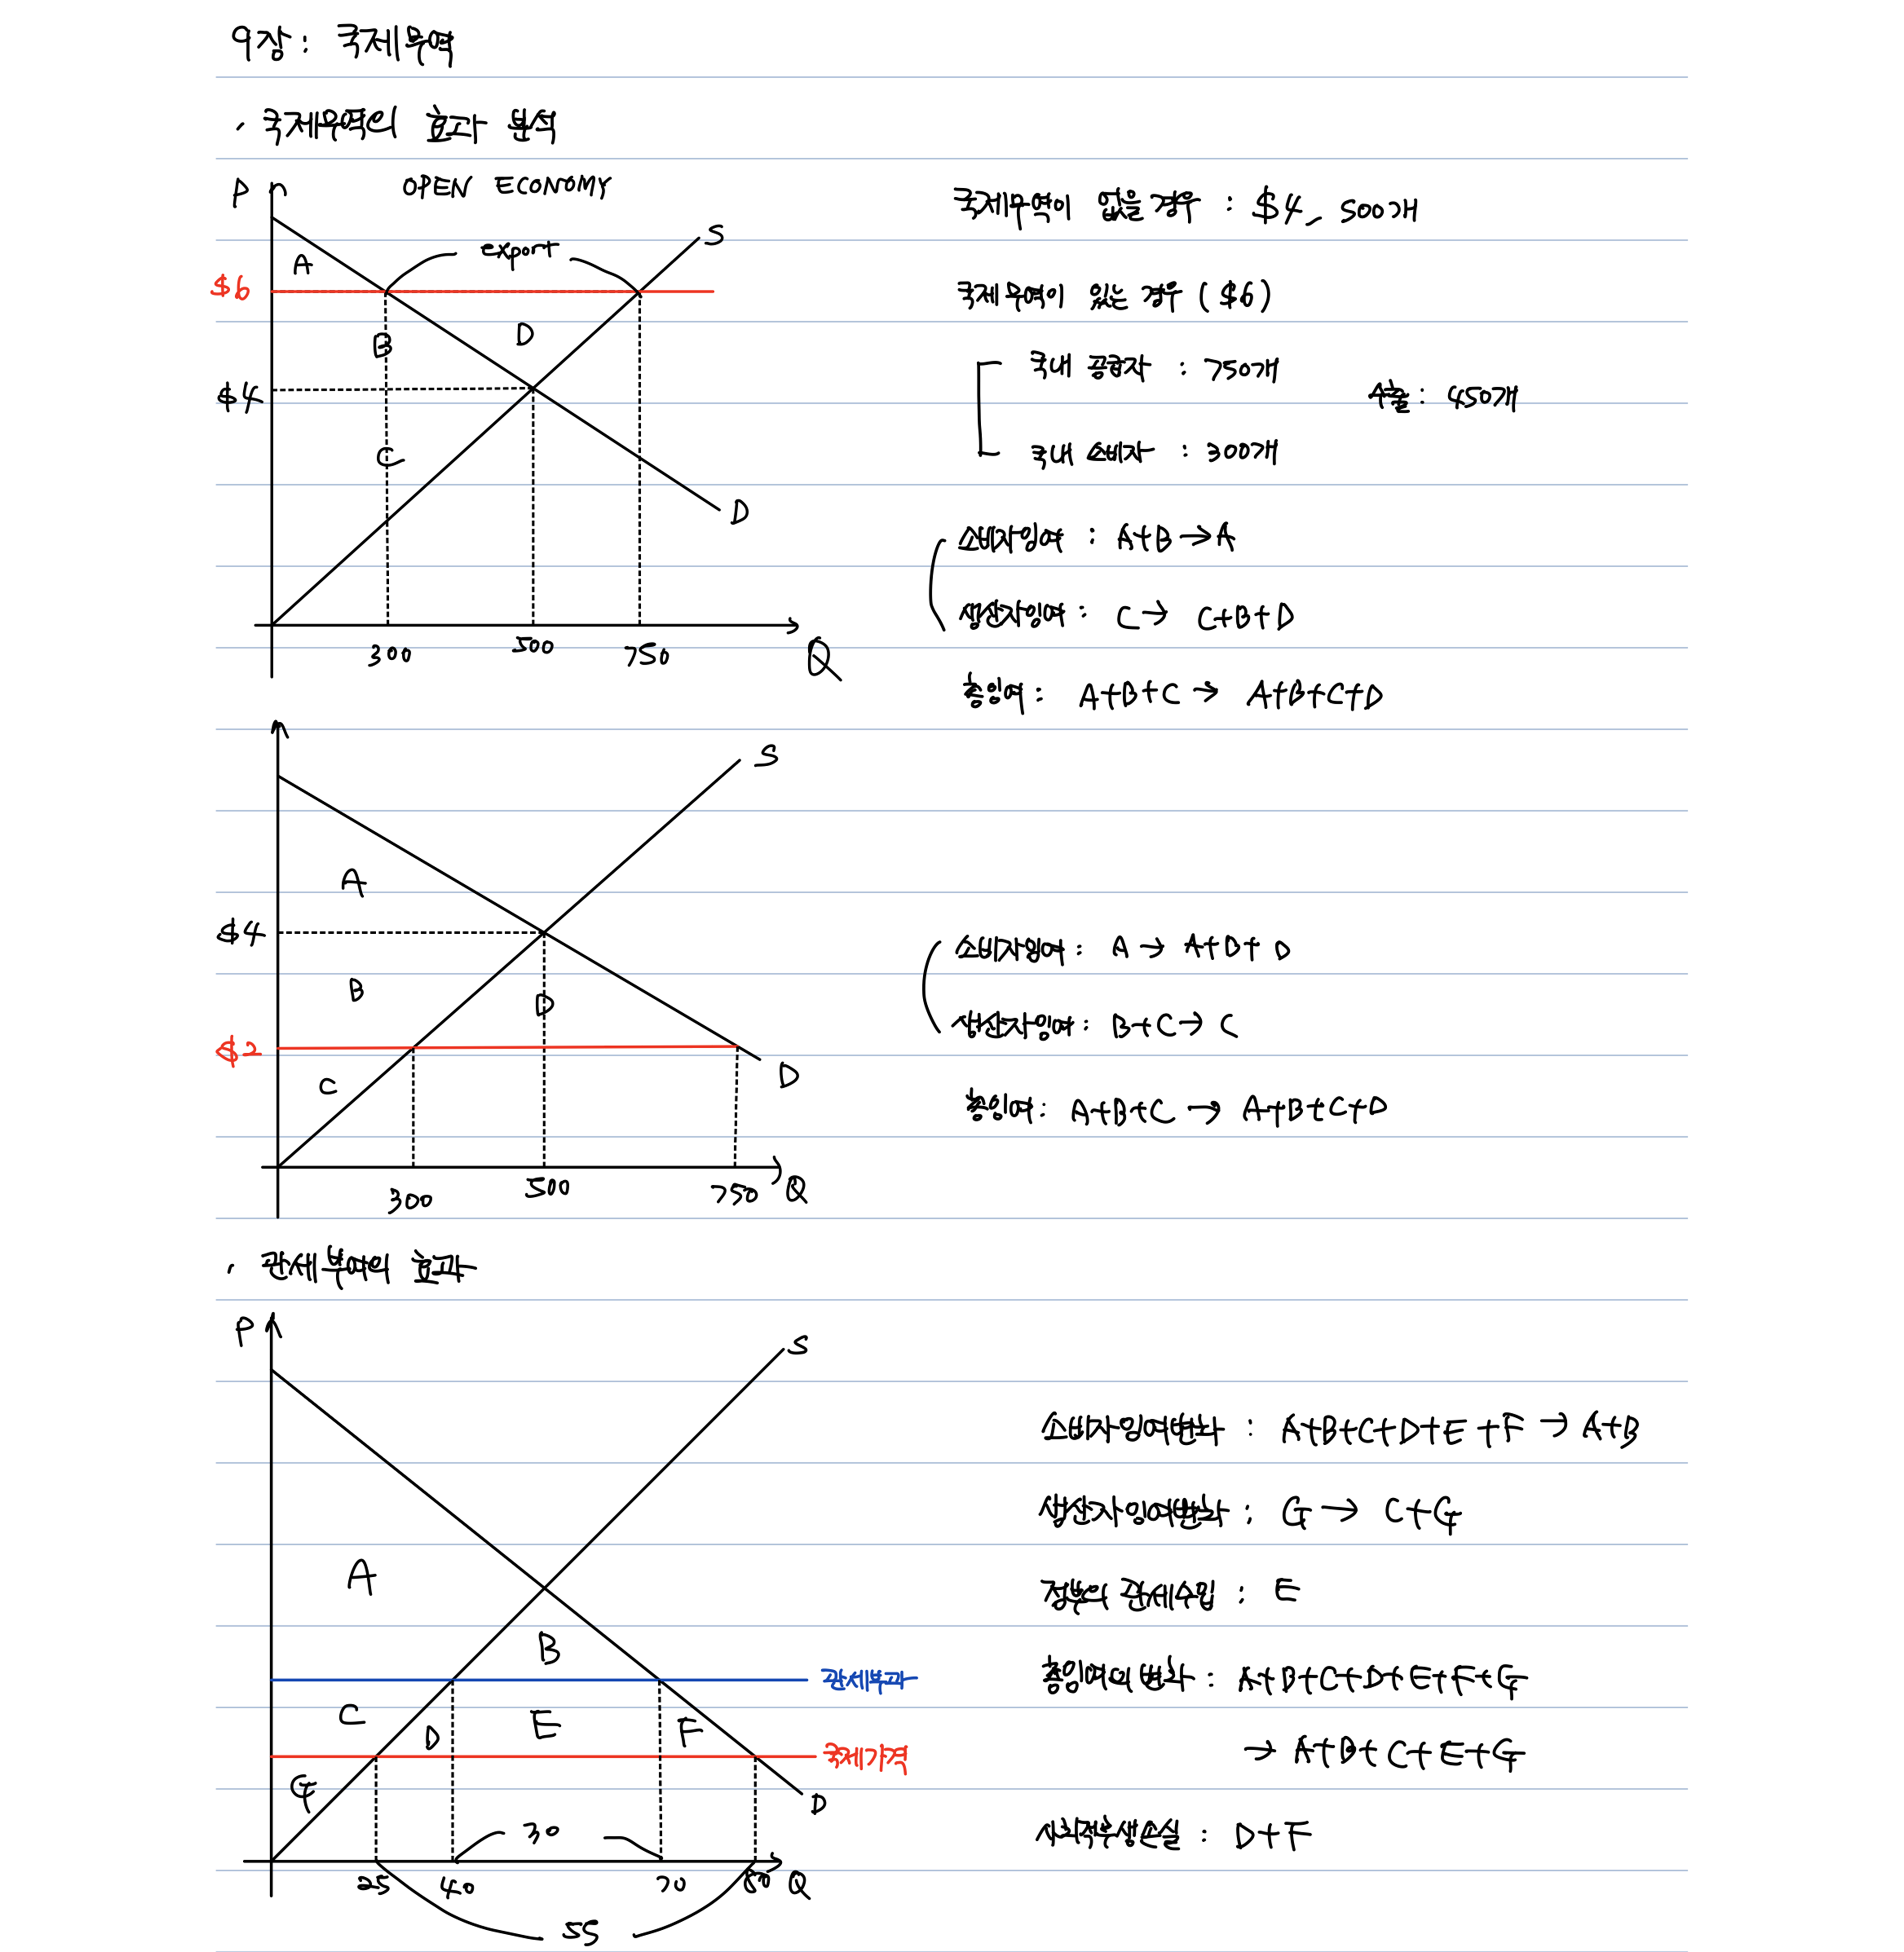 9장: 국제무역
· 국제무역의 효과 분석
P
OPEN ECONOMY
S
export
A
$6
B
D
$4
C
D
300
500
750
Q
국제무역이 없을 경우 : $4, 500개
국제무역이 있는 경우 ($6)
국내 공급자 : 750개
수출: 450개
국내 소비자 : 300개
소비자잉여 : A+B→A
생산자잉여: C→ C+B+D
총잉여: A+B+C → A+B+C+D
S
A
$4
B
D
$2
C
D
300
500
750
Q
소비자잉여: A → A+B+D
생산자잉여: B+C→ C
총잉여: A+B+C → A+B+C+D
· 관세부여의 효과
P
S
A
B
관세부과
C
D
E
F
국제가격
G
D
30
25
40
70
80
Q
55
소비자잉여변화 : A+B+C+D+E+F→A+B
생산자잉여변화 : G→ C+G
정부의 관세수입 : E
총잉여의 변화 : A+B+C+D+E+F+G
→ A+B+C+E+G
사회적후생손실 : D+F